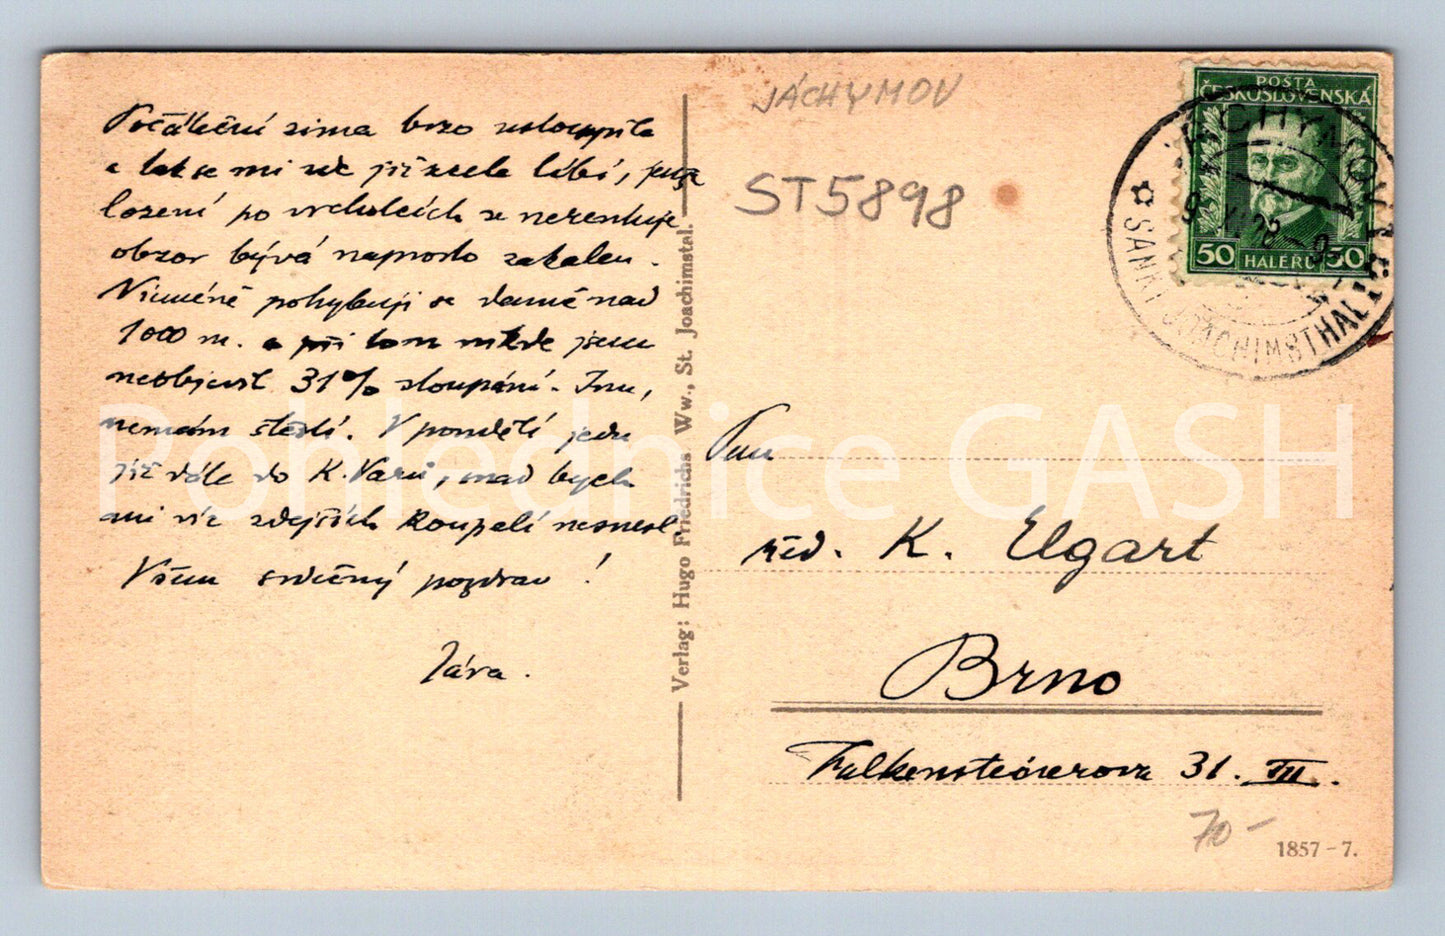 Počáteční zima brzo ustoupila
a tak se mi zde již zcela líbí, jenže
lození po vrcholcích se nerentuje
obzor bývá naprosto zakalen.
Nicméně pohybuji se denně nad
1000 m. a při tom nikde jsem
neobjevil 31% sloupání. Inu,
nemám štěstí. V pondělí jedu
již dále do K. Varů, snad bych
ani víc zdejších koupelí nesnesl
Všem srdečný pozdrav!
Jára.
Verlag: Hugo Friedrichs Ww., St. Joachimstal.
JÁCHYMOV
ST5898
POŠTA
ČESKOSLOVENSKÁ
50 HALÉŘŮ 50
JÁCHYMOV 1
SANKT JOACHIMSTHAL 1
Pan
red. K. Elgart
Brno
Falkensteinerova 31. III.
70-
1857-7.
Pohlednice GASH